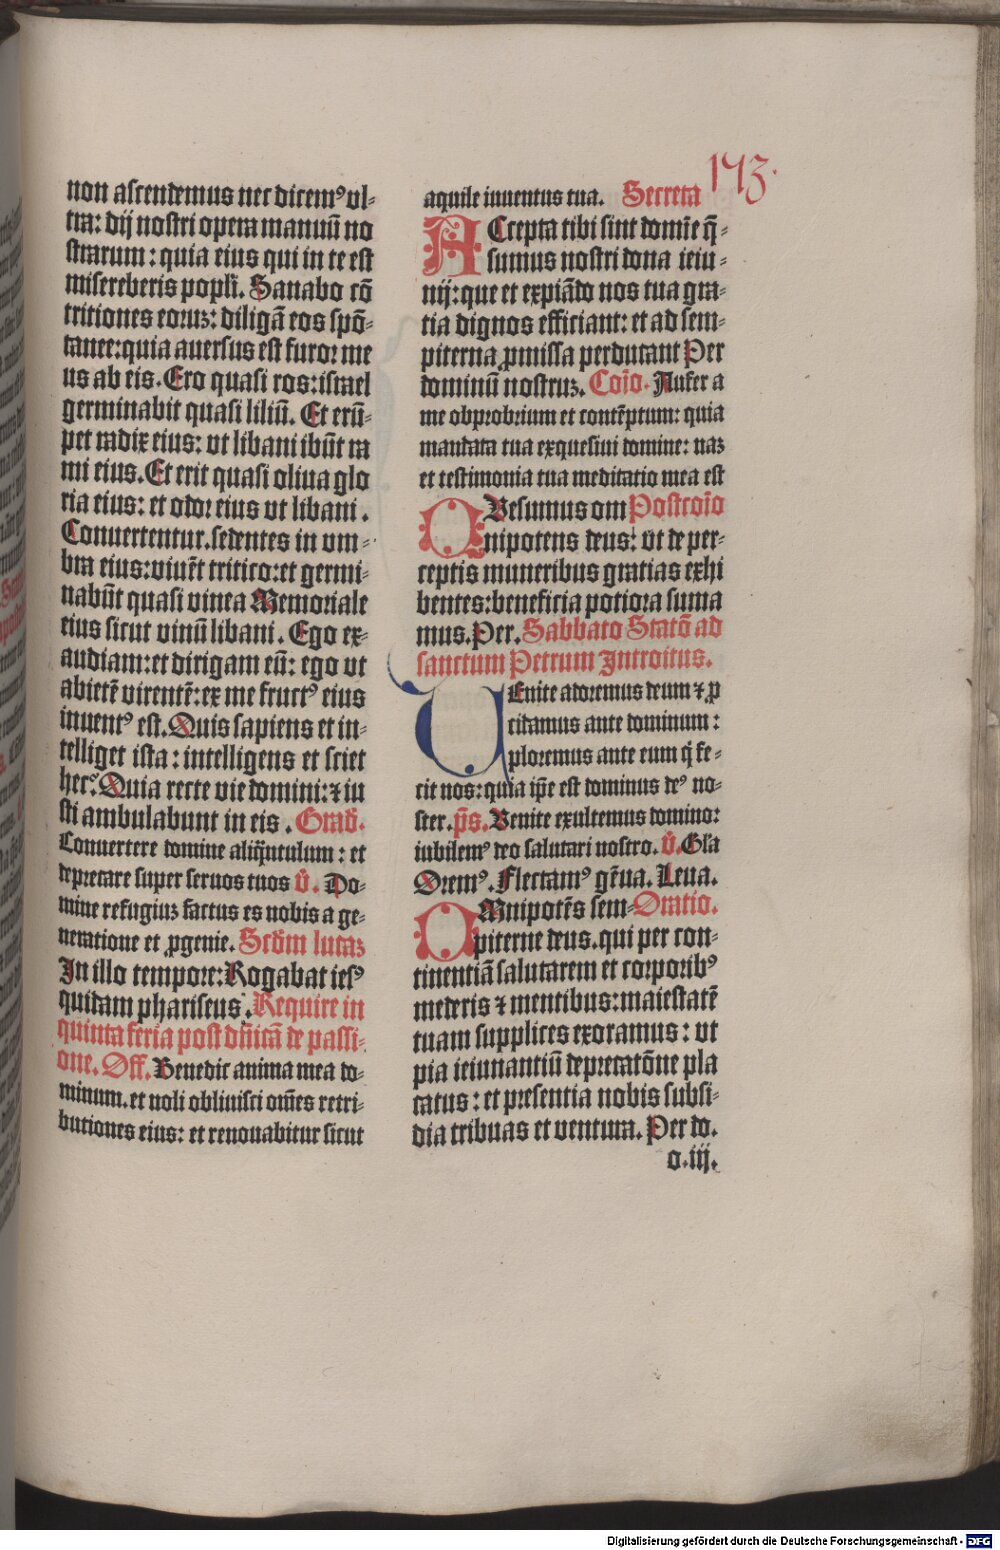 non ascendemus nec dicemꝰ vl-
tra: dij nostri opera manuū no
strarum: quia eius qui in te est
misereberis popli. Sanabo cō
tritiones eoruꝫ: diligā eos spō-
tanee: quia auersus est furor me
us ab eis. Ero quasi ros: israel
germinabit quasi liliū. Et erū-
pet radix eius: vt libani ibūt ra
mi eius. Et erit quasi oliua glo
ria eius: et odor eius vt libani.
Conuertentur. sedentes in vm-
bra eius: viuēt tritico: et germi-
nabūt quasi vinea Memoriale
eius sicut vinū libani. Ego ex-
audiam: et dirigam eū: ego vt
abietē virentē: ex me fructꝰ eius
inuentꝰ est. Quis sapiens et in-
telliget ista: intelligens et sciet
hec? Quia recte vie domini: ⁊ iu
sti ambulabunt in eis. Grad̄.
Conuertere domine aliq̄ntulum: et
deprecare super seruos tuos v̄. Do-
mine refugiuꝫ factus es nobis a ge-
neratione et ꝓgenie. Scd̄m lucaꝫ
In illo tempore: Rogabat iesꝰ
quidam phariseus. Require in
quinta feria post dn̄icā de passi-
one. Off. Benedic anima mea do-
minum. et noli obliuisci om̄es retri-
butiones eius: et renouabitur sicut
173.
aquile iuuentus tua. Secreta
ACcepta tibi sint domīe q̄-
sumus nostri dona ieiu-
nij: que et expiādo nos tua gra-
tia dignos efficiant: et ad sem-
piterna ꝓmissa perducant Per
dominū nostruꝫ. Coīo. Aufer a
me obprobrium et contēptum: quia
mandata tua exquesiui domine: naꝫ
et testimonia tua meditatio mea est
QVesumus om Postcoīo
nipotens deus: vt de per-
ceptis muneribus gratias exhi
bentes: beneficia potiora suma
mus. Per. Sabbato Statō ad
sanctum Petrum Introitus.
VEnite adoremus deum ⁊ ꝓ
cidamus ante dominum:
ploremus ante eum q̄ fe-
cit nos: quia ip̄e est dominus deꝰ no-
ster. p̄s. Venite exultemus domino:
iubilemꝰ deo salutari nostro. v̄. Gl̄a
Oremꝰ. Flectamꝰ gēua. Leua.
OMnipotēs sem- Oratio.
piterne deus. qui per con-
tinentiā salutarem et corporibꝰ
mederis ⁊ mentibus: maiestatē
tuam supplices exoramus: vt
pia ieiunantiū deprecatōne pla
catus: et presentia nobis subsi-
dia tribuas et ventura. Per do.
o.iij.
Digitalisierung gefördert durch die Deutsche Forschungsgemeinschaft - DFG